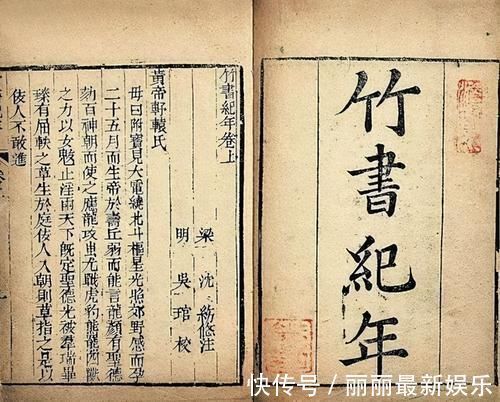 竹書紀年
竹書紀年卷上
梁 沈約 注
明 吳琯校
黃帝軒轅氏
母曰附寶見大電繞北斗樞星光照郊野感而孕
二十五月而生帝於壽丘弱而能言龍顏有聖德
劾百神朝而使之應龍攻蚩尤戰虎豹熊羆四獸
之力以女魃止淫雨天下既定聖德光被羣瑞畢
臻有屈軼之草生於庭佞人入朝則草指之是以
佞人不敢進
快传号 / 丽丽最新娱乐